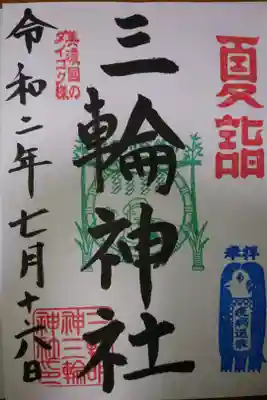 夏詣
奉拝
疫病退散
三輪神社
美濃国の
ダイコク様
令和二年七月十六日